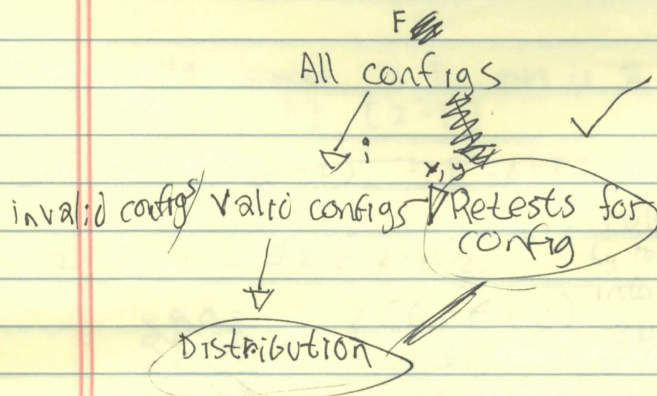 F
All configs
i
x, y
invalid configs / Valid configs Retests for
config
Distribution